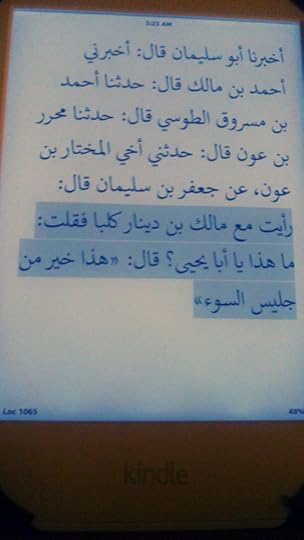 5:23 AM
أخبرنا أبو سليمان قال: أخبرني
أحمد بن مالك قال: حدثنا أحمد
بن مسروق الطوسي قال: حدثنا محرر
بن عون قال: حدثني أخي المختار بن
عون، عن جعفر بن سليمان قال:
رأيت مع مالك بن دينار كلبا فقلت:
ما هذا يا أبا يحيى؟ قال: «هذا خير من
جليس السوء»
Loc 1065 48%
kindle